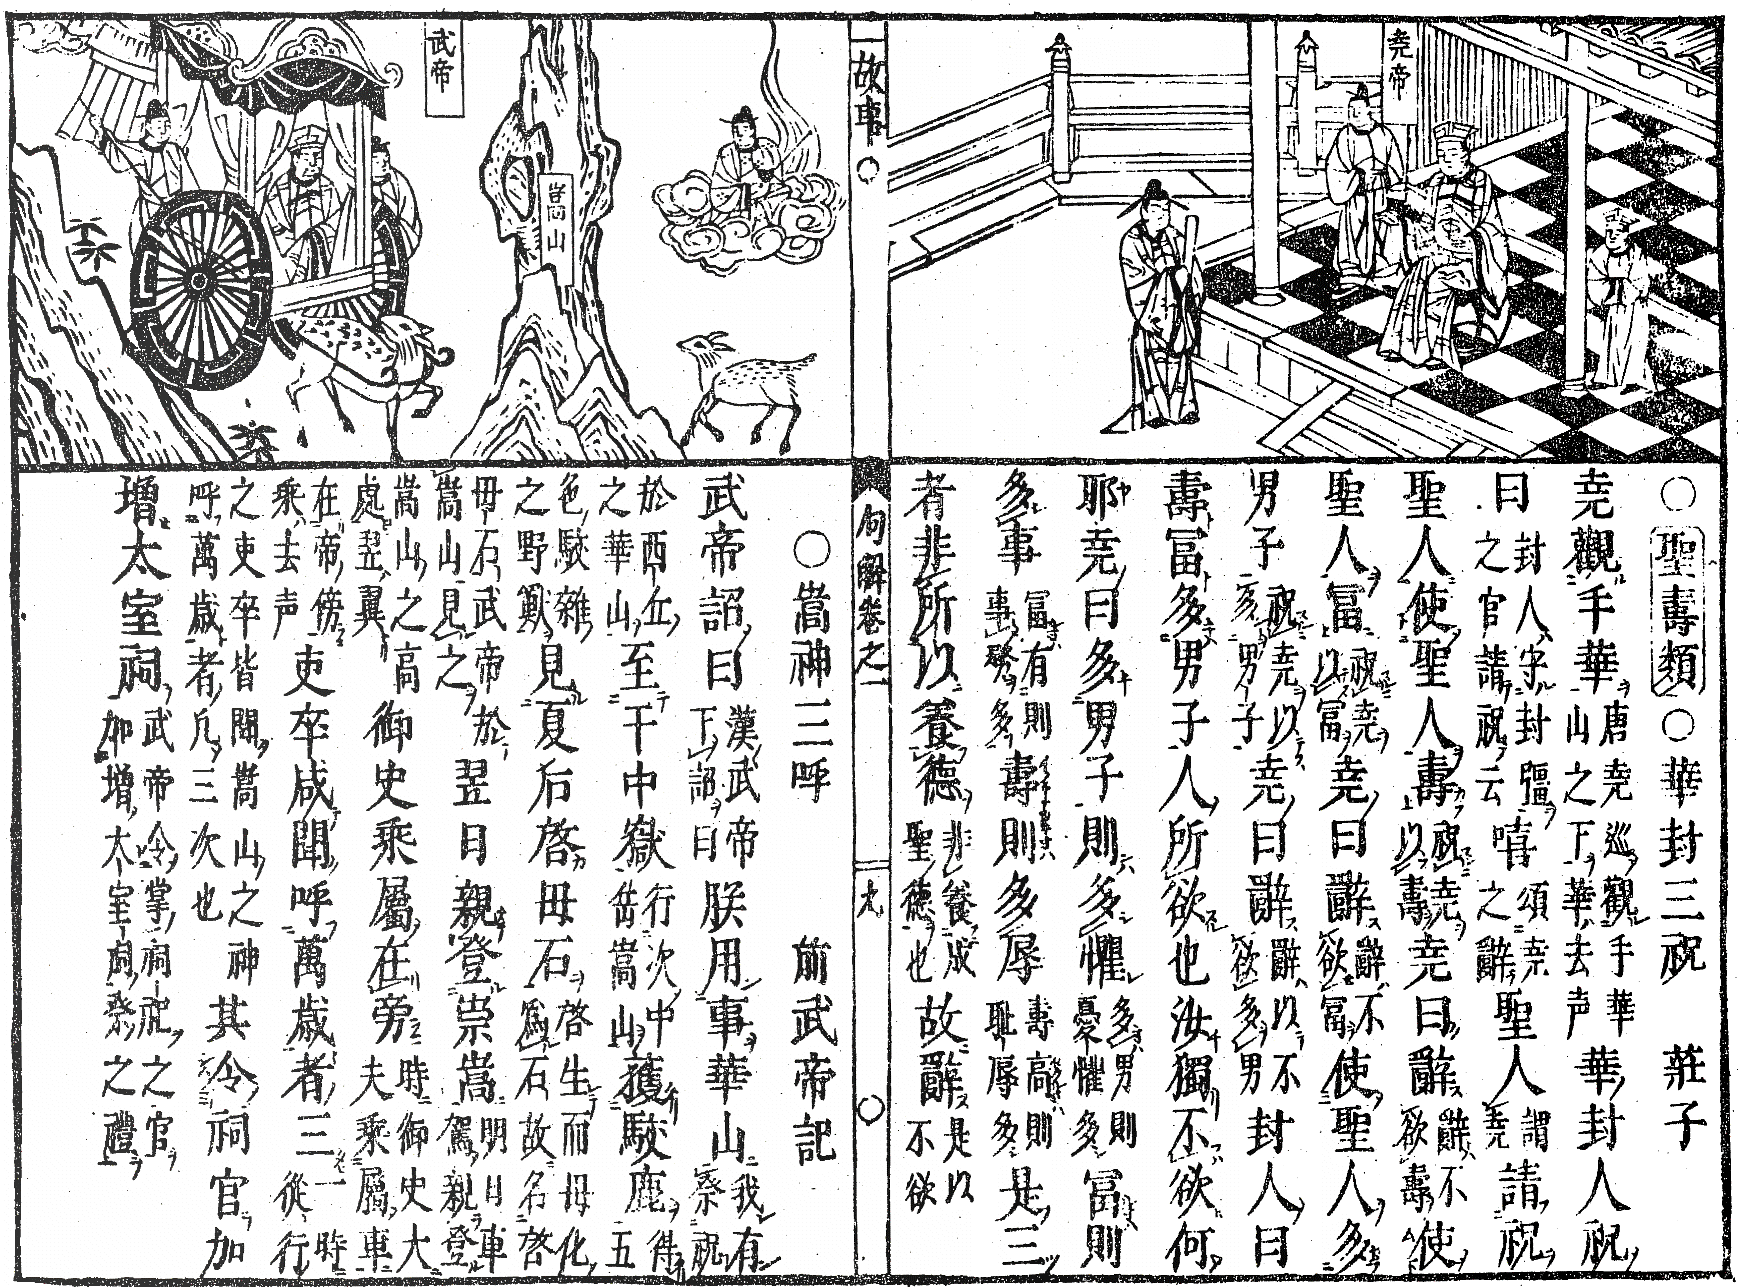 尭帝
○聖壽類○華封三祝 莊子
尭觀乎華唐尭巡觀乎華山之下華去声華封人祝
曰封人守封疆之官請祝云嘻頌尭之辭聖人謂尭請祝
聖人使聖人壽祝尭以壽尭曰辭辭不欲壽使
聖人冨祝尭以冨尭曰辭辭不欲冨使聖人多
男子祝尭以多男子尭曰辭辭以不欲多男封人曰
壽冨多男子人所欲也汝獨不欲何
耶尭曰多男子則多懼多男則憂懼多冨則
多事冨有則事務多壽則多辱壽高則耻辱多是三
者非所以養德非養成聖德也故辭是以不欲
故事 句解卷之一 九
武帝
嵩山
○嵩神三呼 前武帝記
武帝詔曰漢武帝下詔曰朕用事華山我有祭祝
於西丘之華山至于中嶽行次中岳嵩山獲駮鹿得五
色駮雜之野獸見夏后啓母石啓生而母化為石故名啓
母石武帝於嵩山見之翌日親登崇嵩明日車駕親登
嵩山之高處翌翼御史乘屬在旁時御史大夫乘屬車
在帝傍乘去声吏卒咸聞呼萬歳者三一時從行
之吏卒皆聞嵩山之神呼萬歳者凡三次也其令祠官加
增太室祠武帝令掌祠祀之官加增太室祠祭之禮